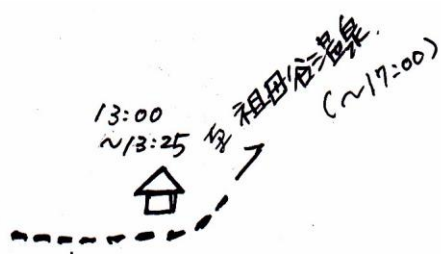 13:00
~13:25
至 祖母谷温泉
(~17:00)